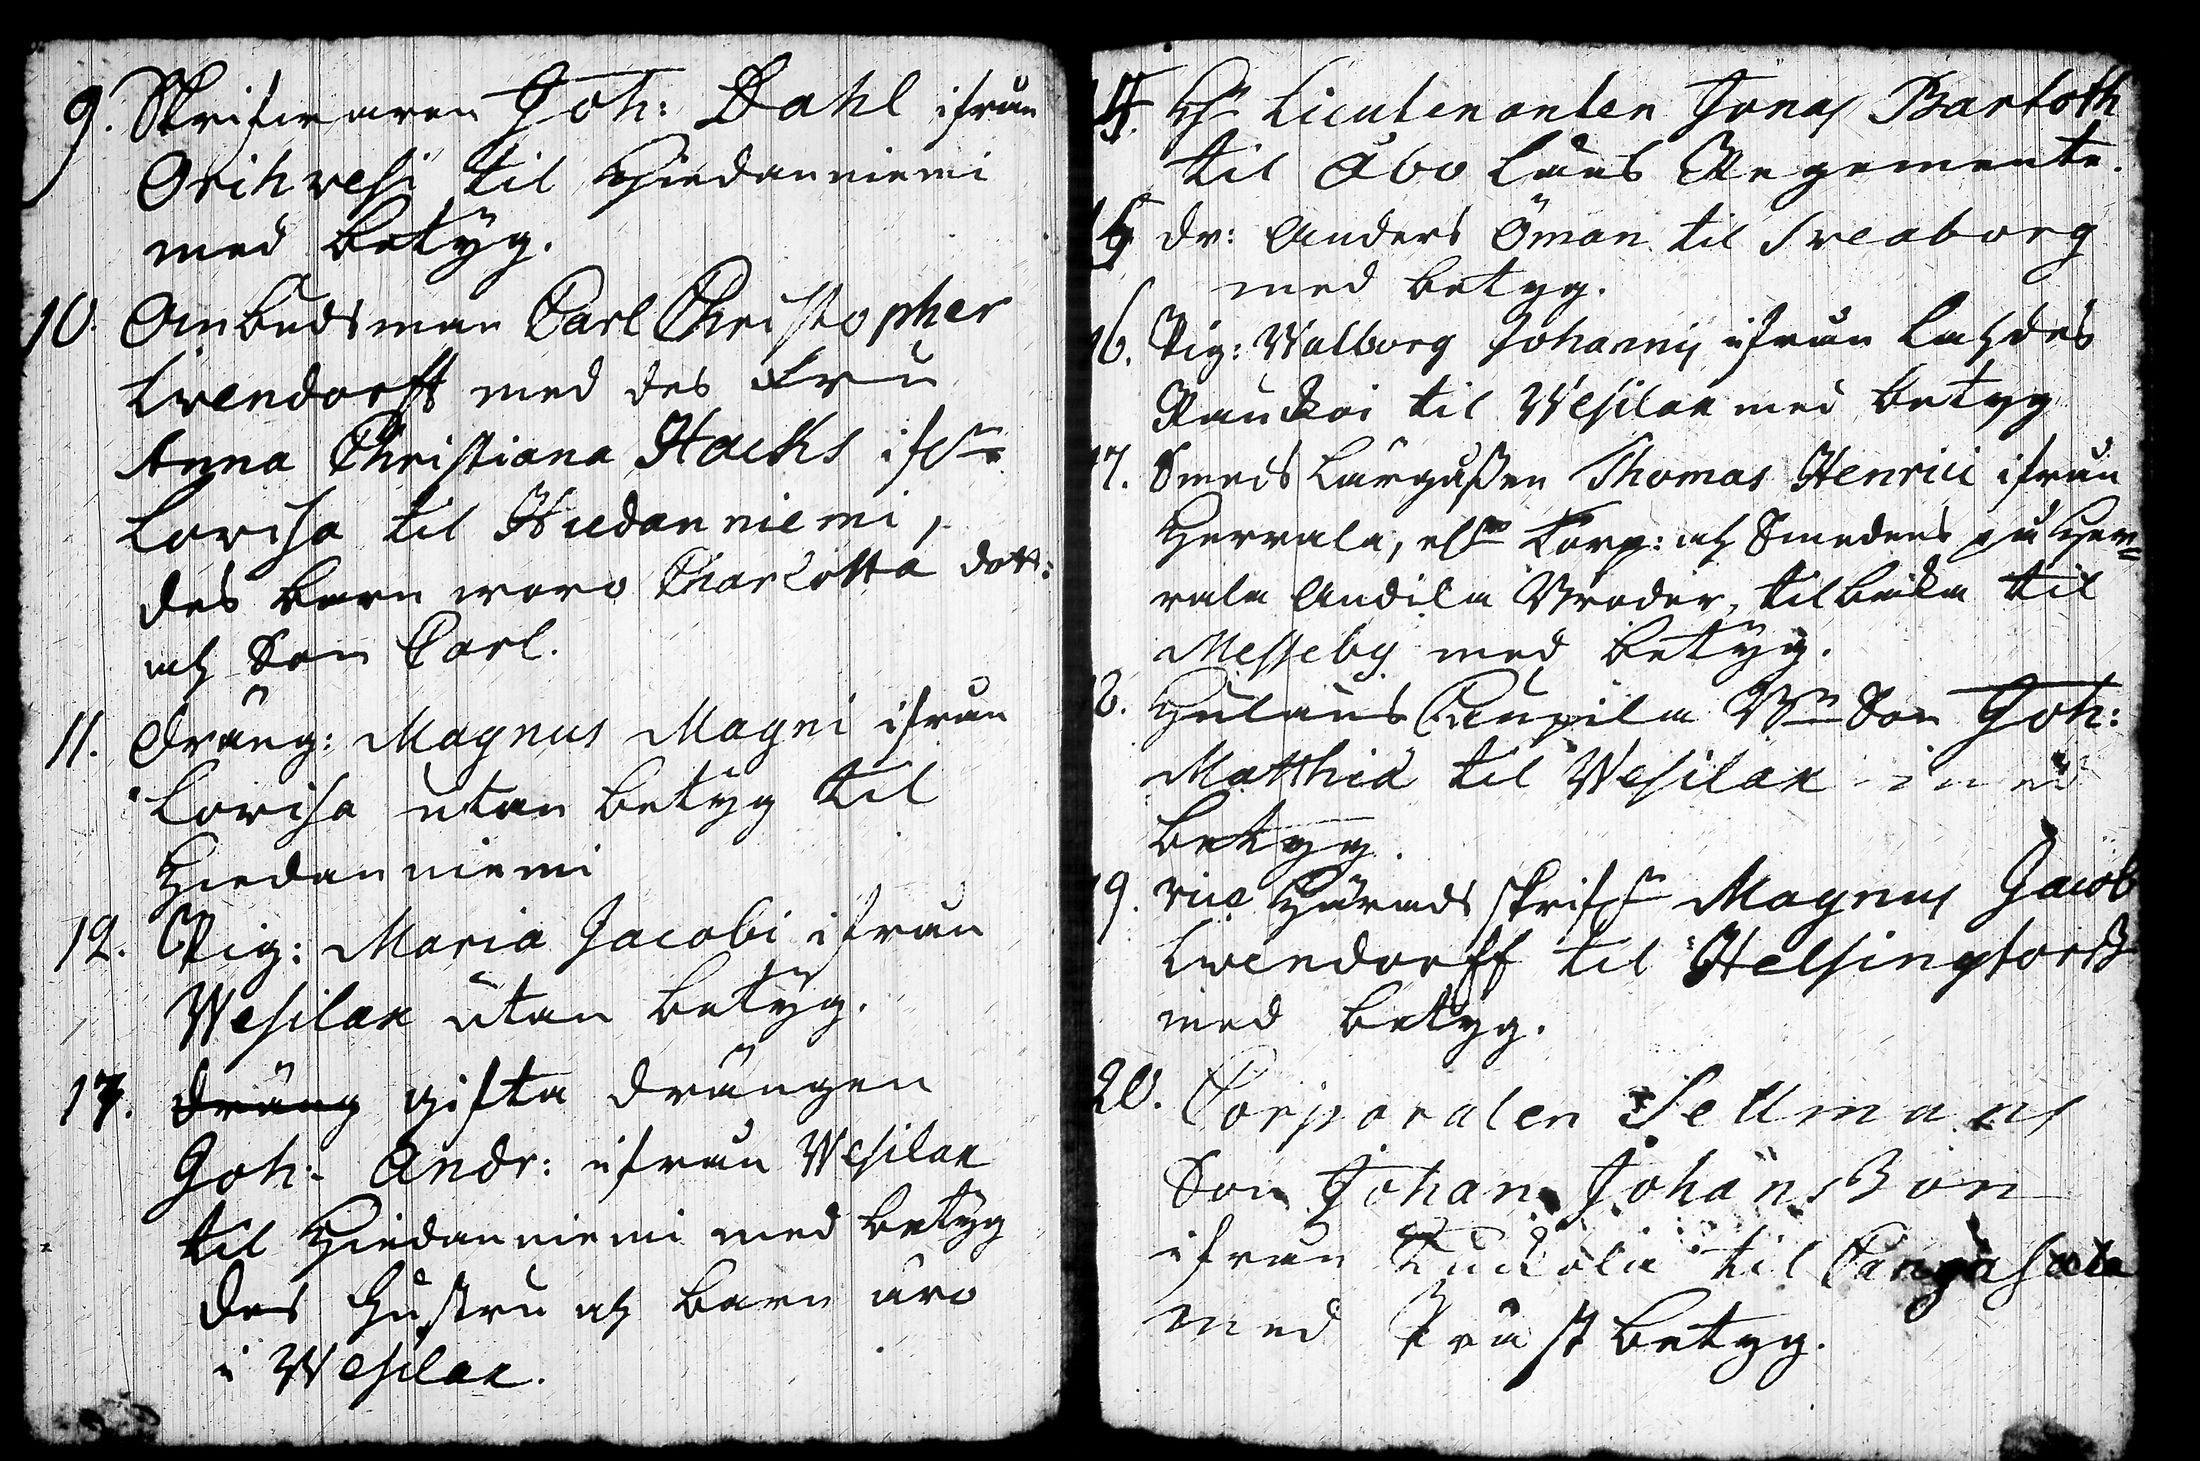 9. Skrifwaren Joh: Dahl ifrån
Orihwesi til Hiedanniemi
med betÿg.
10. Ombudsman Carl Christopher
Lwendorff med des Fru
Anna Christiana Hacks
Lovisa til Hiedanniemi,
des barn woro Charlotta dott:
och Son Carl.
11. Dräng: Magnus Magni ifrån
Lovisa utan betÿg til
Hiedanniemi
12. Pig: Maria Jacobi ifrån
Wesilax utan betÿg.
13. Dräng gifta Drängen
Joh: Andr: ifrån Wesilax
til Hiedanniemi med betÿg
Des Hustru och barn äro
i Wesilax.
14. Hr Lieutenanten Jonas Bartoth
til Åbo Läns Regemente.
15 Dr: Anders Öman til Sveaborg
med betyg.
16. Pig: Walborg Johannis ifrån
til Wesilax med betyg
17. Smeds Lärgåßen Thomas Henrici ifrån
Herrala, Torp: och Smedens på Her=
rala Andila Broder, tilbaka til
Messeby med betÿg.
18. Son Joh:
Matthiæ til Wesilax med
betyg.
19. vice Härads skrifv Magnus Jacob
Lwendorff til Helsingforß
med betyg.
20. Corporalen Sellmans
Son Johan Johanßon
ifrån til
med Präst betyg.